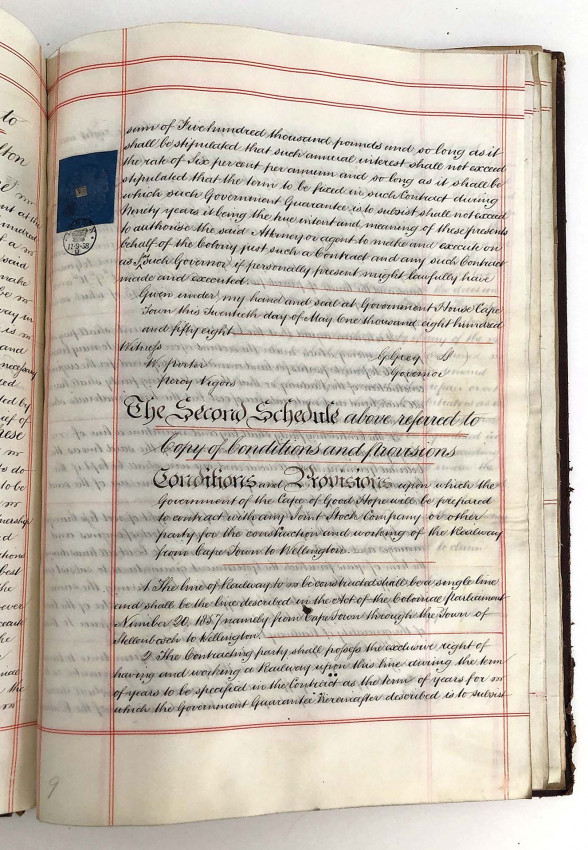 sum of Five hundred thousand pounds and so long as it
shall be stipulated that such annual interest shall not exceed
the rate of Six per cent per annum and so long as it shall be
stipulated that the term to be fixed in such Contract during
which such Government Guarantee is to subsist shall not exceed
Ninety years it being the true intent and meaning of these presents
to authorise the said Attorney or agent to make and execute on
behalf of the Colony just such a Contract and any such Contract
as such Governor if personally present might lawfully have
made and executed.
Given under my hand and seal at Government House Cape
Town this Twentieth day of May One thousand eight hundred
and fifty eight
Witness
G Grey
W. Porter
Governor
Percy Vigors
The Second Schedule above referred to
Copy of Conditions and Provisions
Conditions and Provisions upon which the
Government of the Cape of Good Hope will be prepared
to contract with any Joint Stock Company or other
party for the construction and working of the Railway
from Cape Town to Wellington.
1. The line of Railway to be constructed shall be a single line
and shall be the line described in the Act of the Colonial Parliament
Number 20, 1857 namely from Cape Town through the Town of
Stellenbosch to Wellington.
2. The Contracting party shall possess the exclusive right of
having and working a Railway upon this line during the term
of years to be specified in the Contract as the term of years for
which the Government Guarantee hereinafter described is to subsist
11-9-58
9